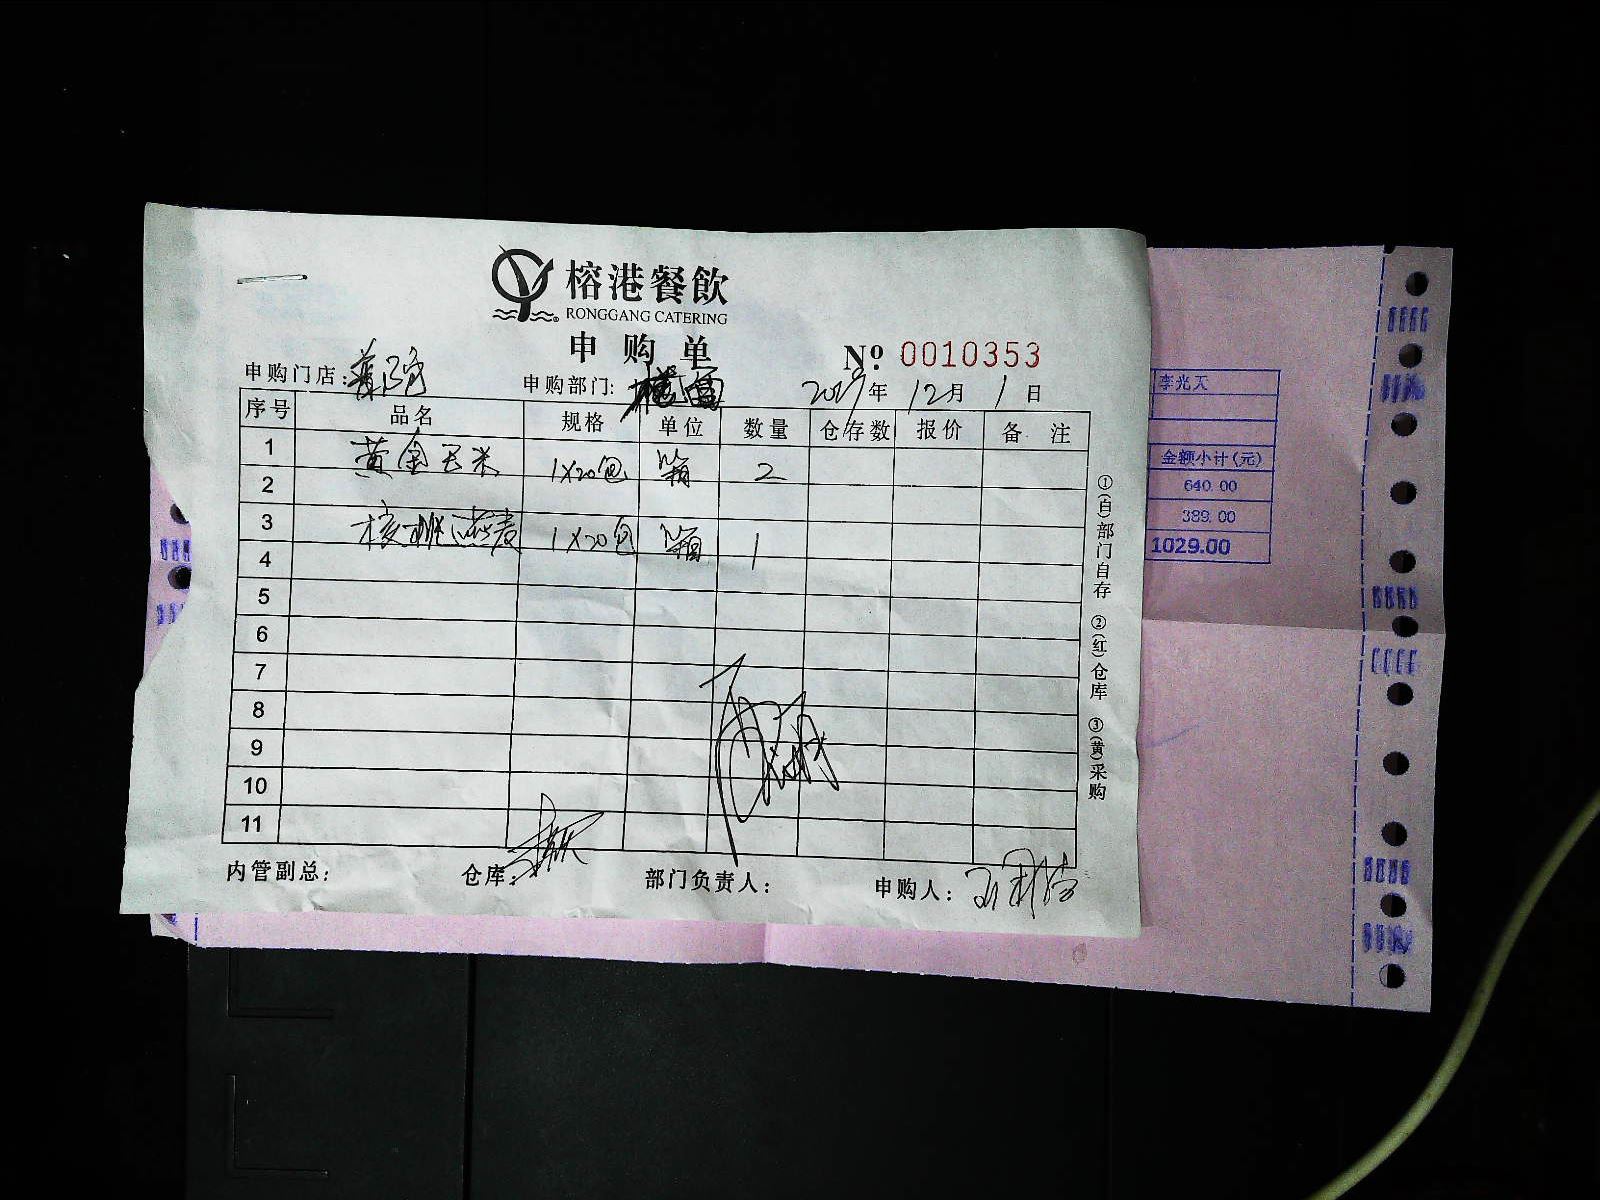 榕港餐飲
RONGGANG CATERING
申购单
№ 0010353
申购门店：
申购部门：
年 12月 1日
序号 品名 规格 单位 数量 仓存数 报价 备注
1 黄金玉米 1X20包 箱 2
2
3 核桃燕麦 1X20包 箱 1
4
5
6
7
8
9
10
11
内管副总： 仓库： 部门负责人： 申购人：
①(白)部门自存 ②(红)仓库 ③(黄)采购
李光天
金额小计(元)
640.00
389.00
1029.00